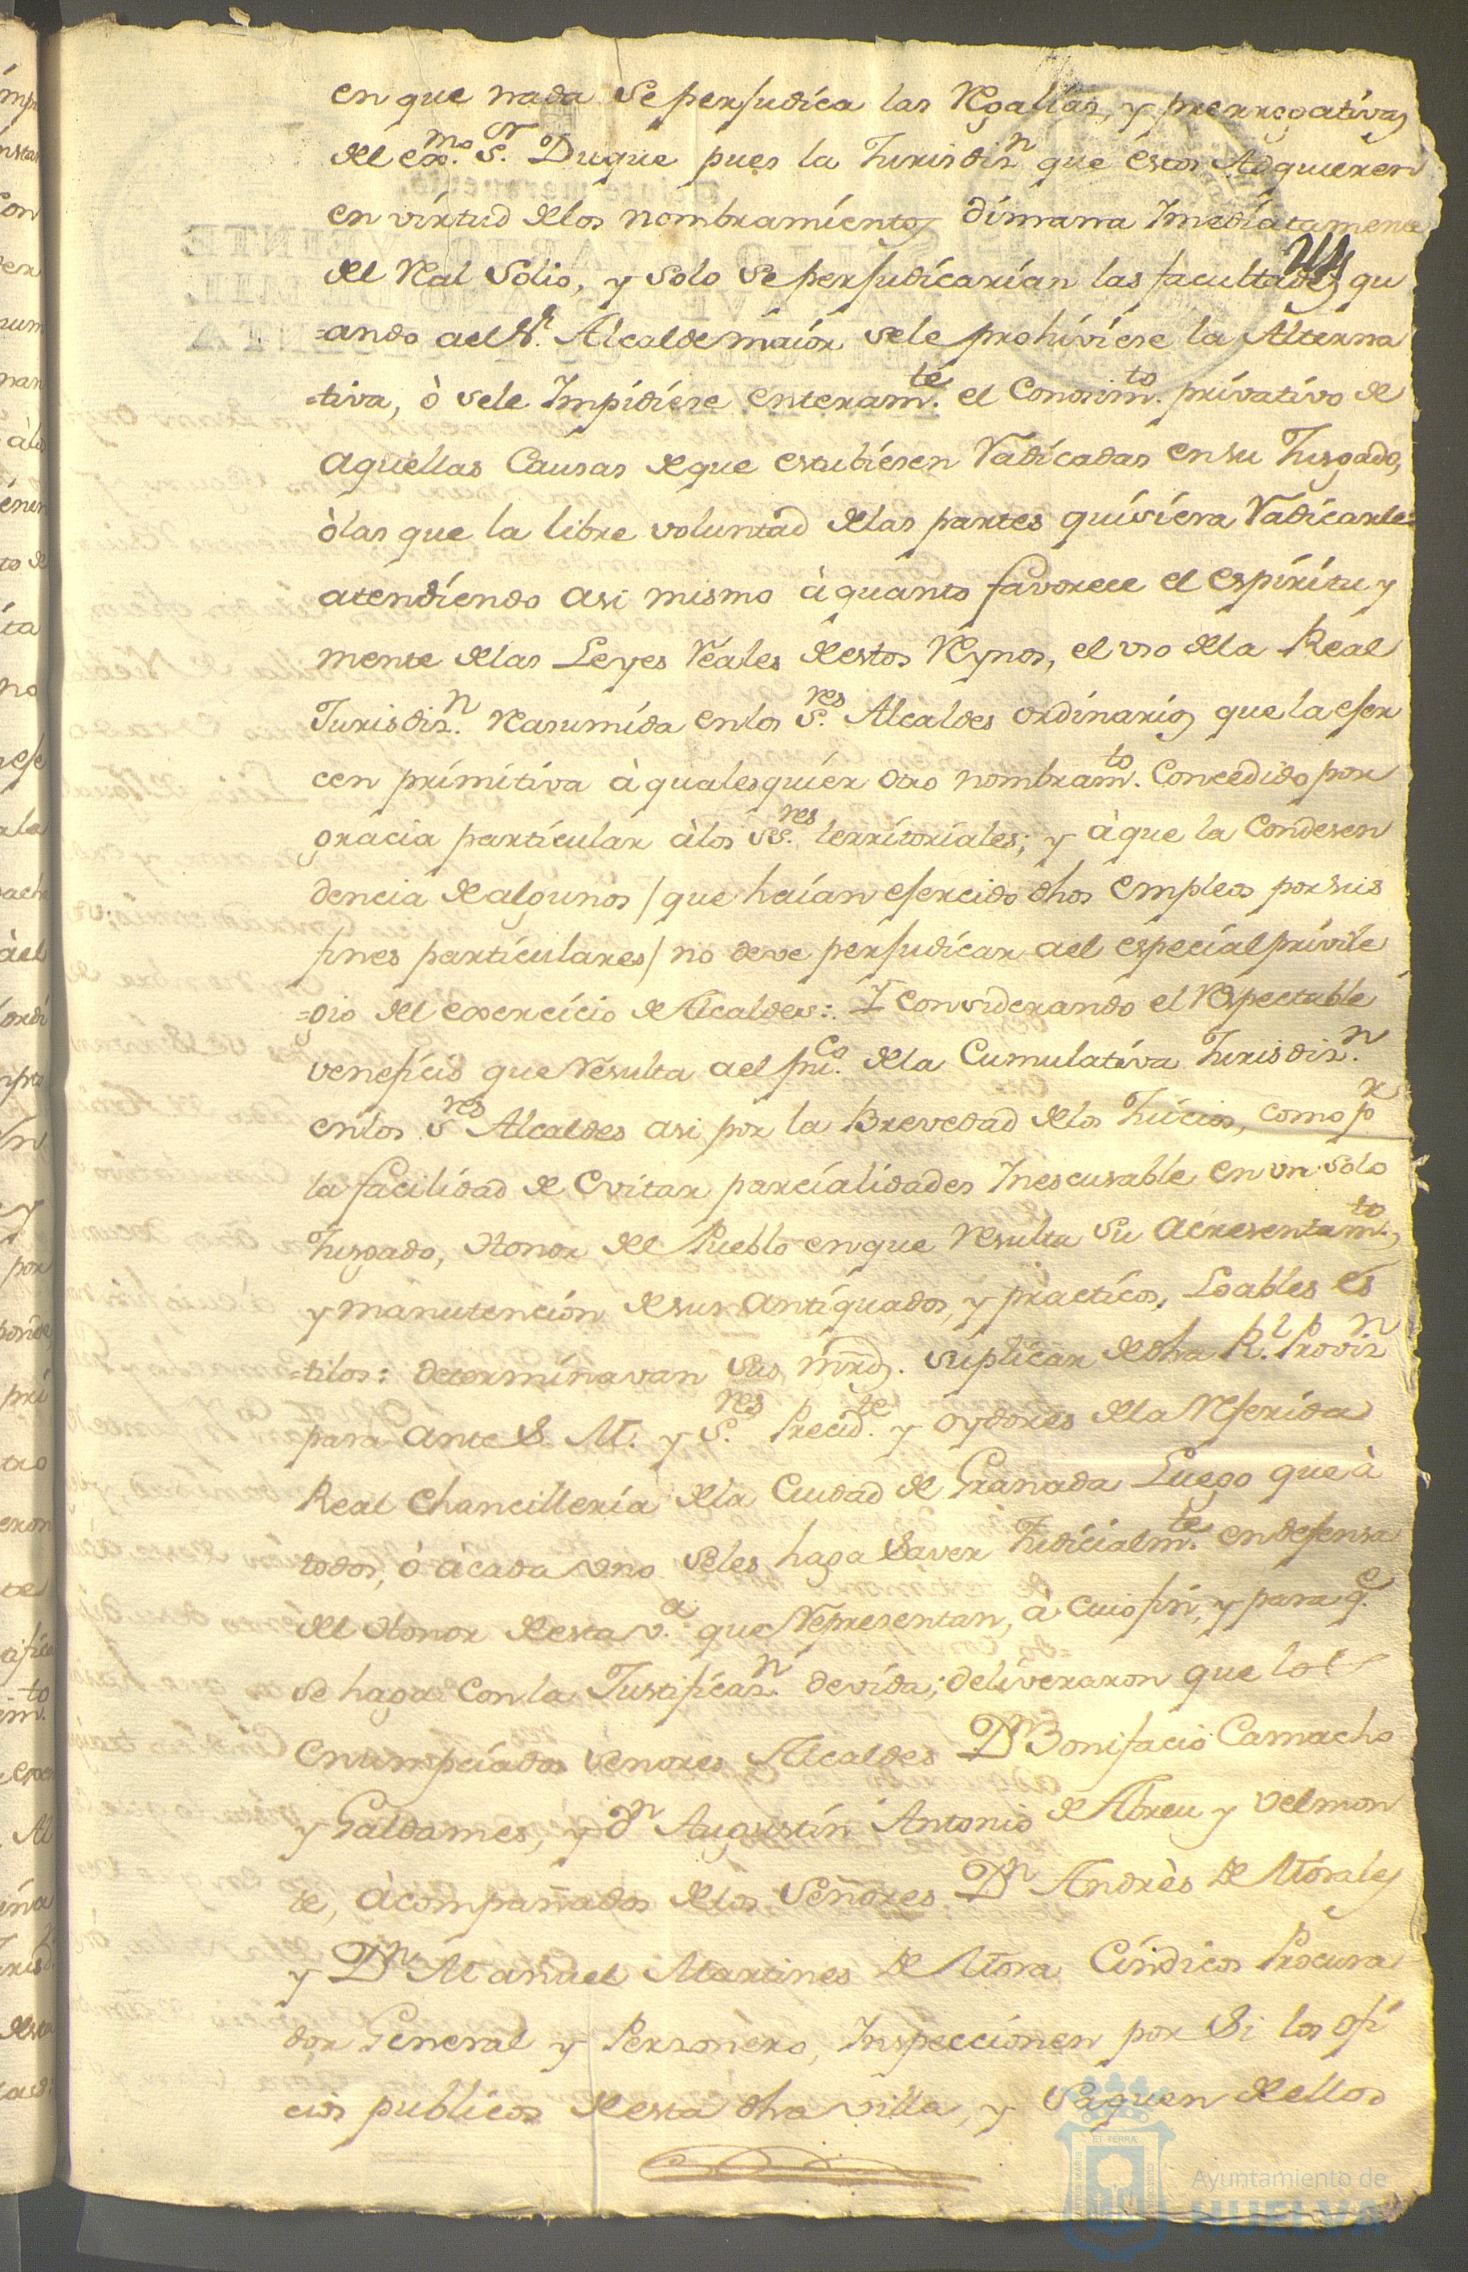 en que nada se perjudica las Regalias, y prerrogativas
del exmo. Sr. Duque pues la Jurisdizn que estos Adquieren
en virtud de los nombramientos dimana Imediatamente
del Real Solio, y solo se perjudicarian las facultades qu
=ando ael Sr. Alcalde maior se le prohiviese la Alterna
=tiva, ò se le Impidiese enteramte. el Conosimto. privativo de
aquellas Causas de que estubiesen Radicadas en su Jusgado,
òlas que la libre voluntad de las partes quisiera Radicarle
atendiendo asi mismo à quanto favorece el espiritu y
mente de las Leyes Reales de estos Reynos, el uso de la Real
Jurisdizn. Reasumida en los Sres. Alcaldes ordinarios que la ejer
cen primitiva à qualesquier otro nombramto. Concedido por
gracia particular àlos SSres. territoriales; y àque la Condesen
dencia de algunos / que haian ejercido dhos empleos por sus
fines particulares / no deve perjudicar ael especial privile
=gio del exercicio de Alcaldes: Y Considerando el Respectable
veneficio que Resulta ael puco. de la Cumulativa Jurisdizn.
en los Sres Alcaldes asi por la Brevedad de los Juicios, como pr
la facilidad de evitar parcialidades Inescusable en un solo
Jusgado, Honor del Pueblo en que Resulta su acresentamto.,
y manutencion de sus antiguados, y practicos, Loables es
=tilos: determinavan sus mrds. suplicar de dha Rl. Provizn
para ante S. M. y Sres. Precidte. y oydores de la Referida
Real Chancilleria de la Ciudad de Granada Luego que à
todos, ò àcada uno se les haga saver Judicialmte. en defensa
del Honor de esta va. que Representan, à cuio fin, y para qe.
se haga Con la Justificazn. devida; deliveraron que los
enumpciados Señores Alcaldes Dn Bonifacio Camacho
y Galdames, y dn Augustin Antonio de Abreu y Velmon
te, àcompañados de los Señores Dn Andrès de Morales
y Dn Manuel Martines de Mora Cindicos Procura
dor General y Personero, Inspeccionen por Si los ofi
cios publicos de esta dha villa, y saquen de ellos
Ayuntamiento de
HUELVA